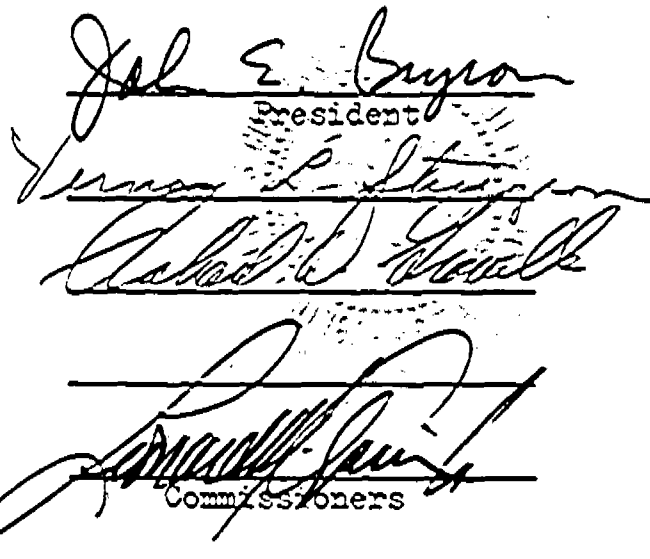 John E. Bryson
President
Vernon L. Sturgeon
Richard D. Gravelle
Commissioners